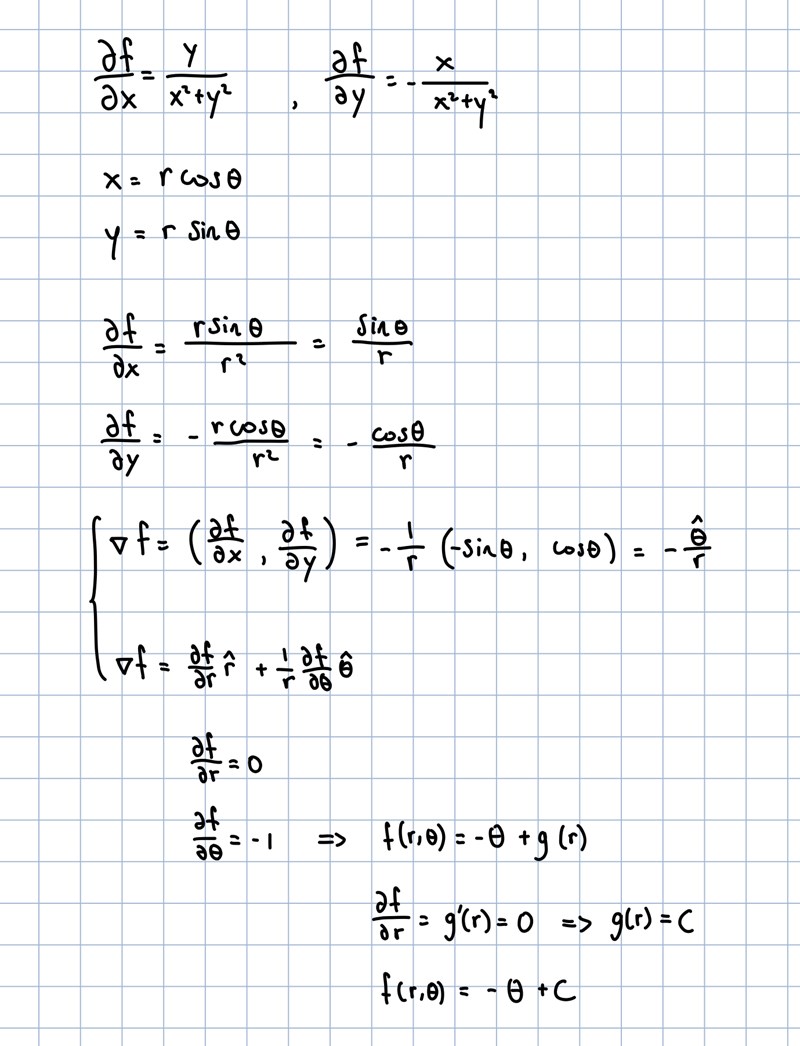 ∂f/∂x = y/(x²+y²) , ∂f/∂y = - x/(x²+y²)
x = r cosθ
y = r sinθ
∂f/∂x = r sinθ/r² = sinθ/r
∂f/∂y = - r cosθ/r² = - cosθ/r
{ ∇f = (∂f/∂x , ∂f/∂y) = - 1/r (-sinθ, cosθ) = - θ̂/r
∇f = ∂f/∂r r̂ + 1/r ∂f/∂θ θ̂
∂f/∂r = 0
∂f/∂θ = -1 => f(r,θ) = -θ + g(r)
∂f/∂r = g'(r) = 0 => g(r) = C
f(r,θ) = - θ + C